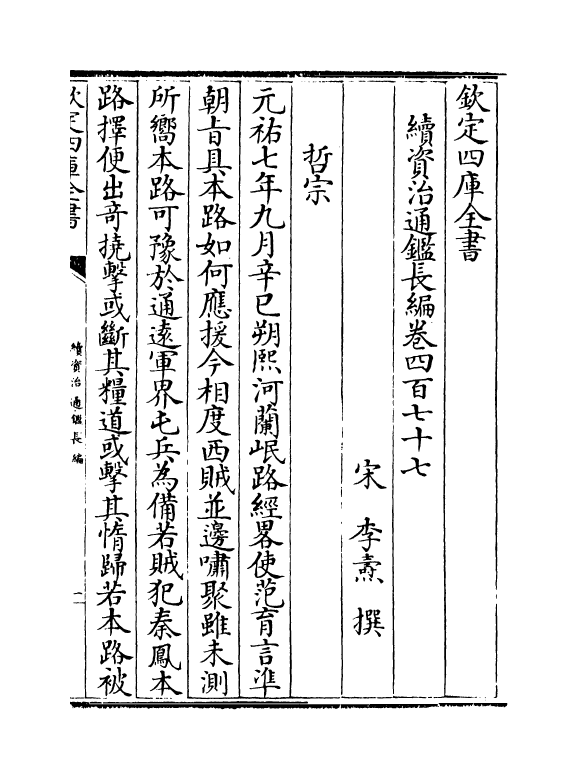 欽定四庫全書
續資治通鑑長編卷四百七十七
宋 李燾 撰
哲宗
元祐七年九月辛巳朔熙河蘭岷路經畧使范育言準
朝㫖具本路如何應援今相度西賊並邊嘯聚雖未測
所嚮本路可豫於通遠軍界屯兵為備若賊犯秦鳳本
路擇便出竒撓擊或斷其糧道或擊其惰歸若本路被
欽定四庫全書
續資治通鑑長編